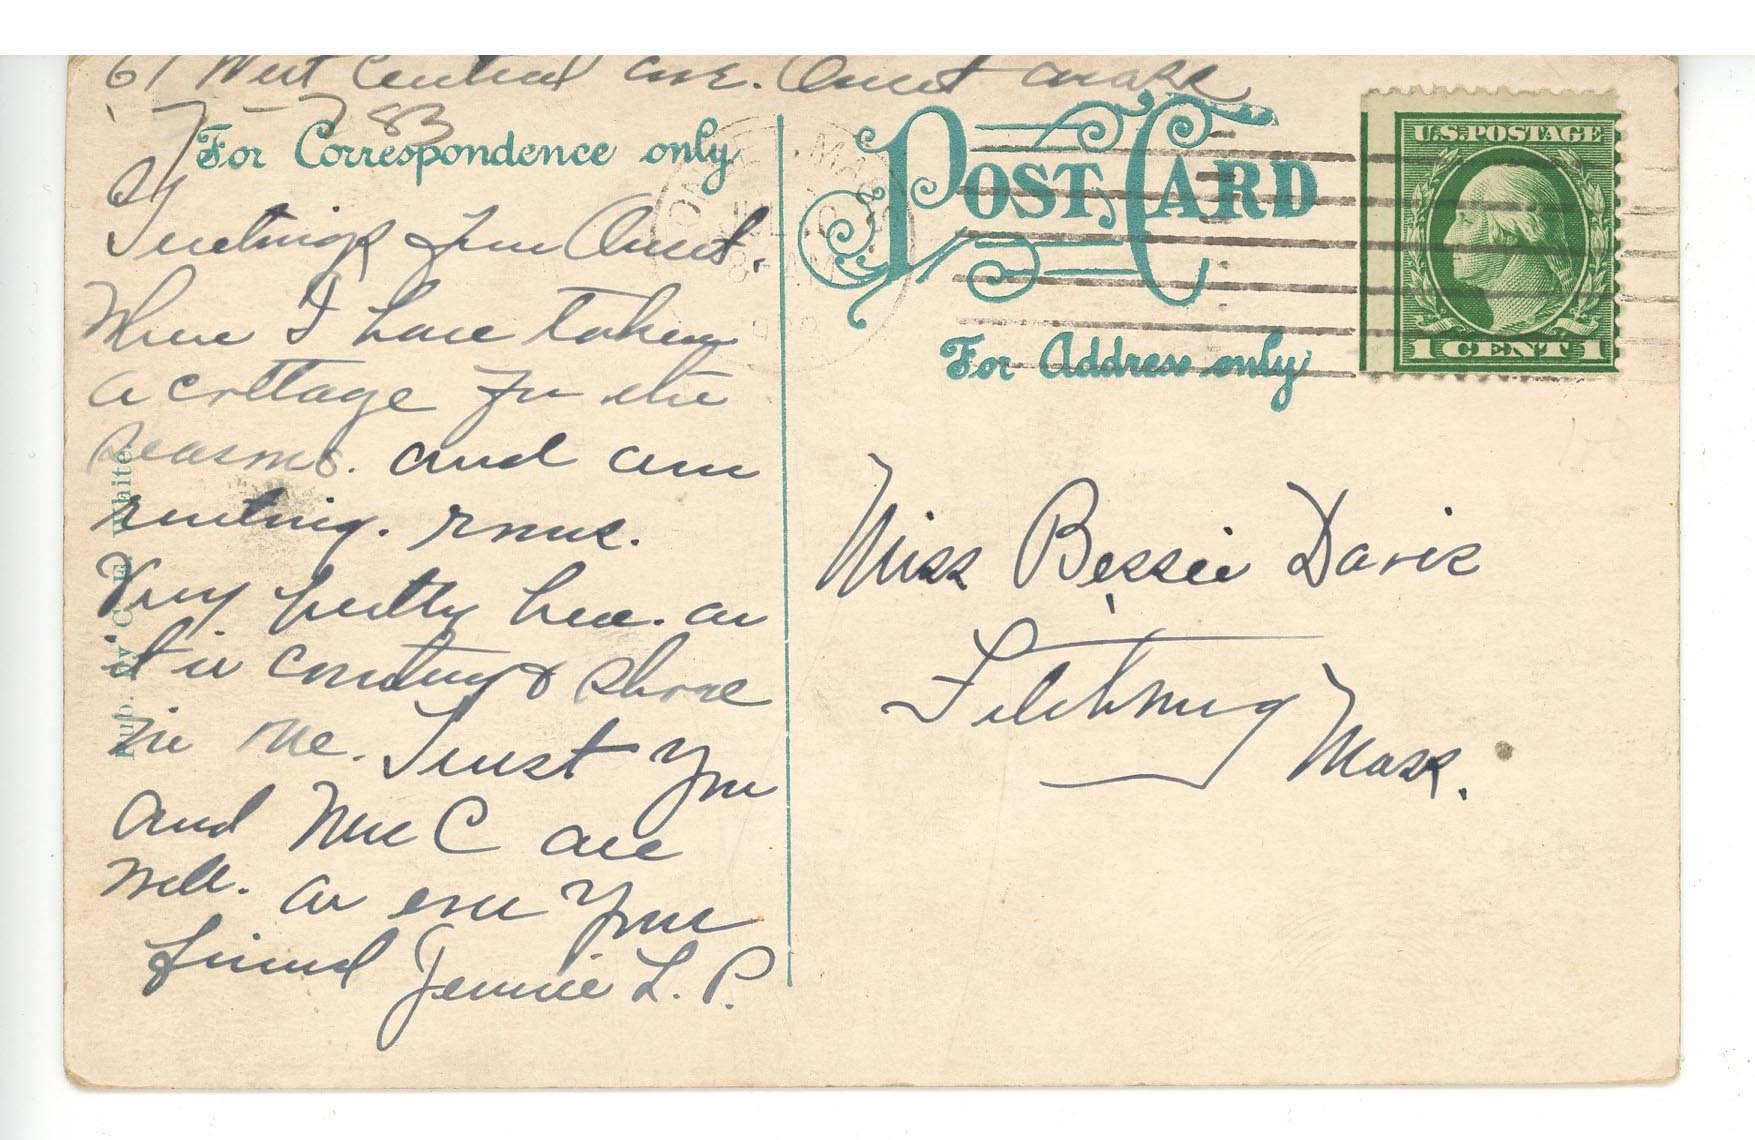 61 West Central ave. Onset Mass
For Correspondence only
Greetings from Onset.
Where I have taken
a cottage for the
season. and am
renting. rooms.
Very pretty here. as
it is country & shore
in one. Trust you
and Mrs C are
well. as ever your
friend Jennie L. P.
Pub. by C. E. White.
POST CARD
For Address only
U.S. POSTAGE
1 CENT 1
Miss Bessie Davis
Fitchburg
Mass.